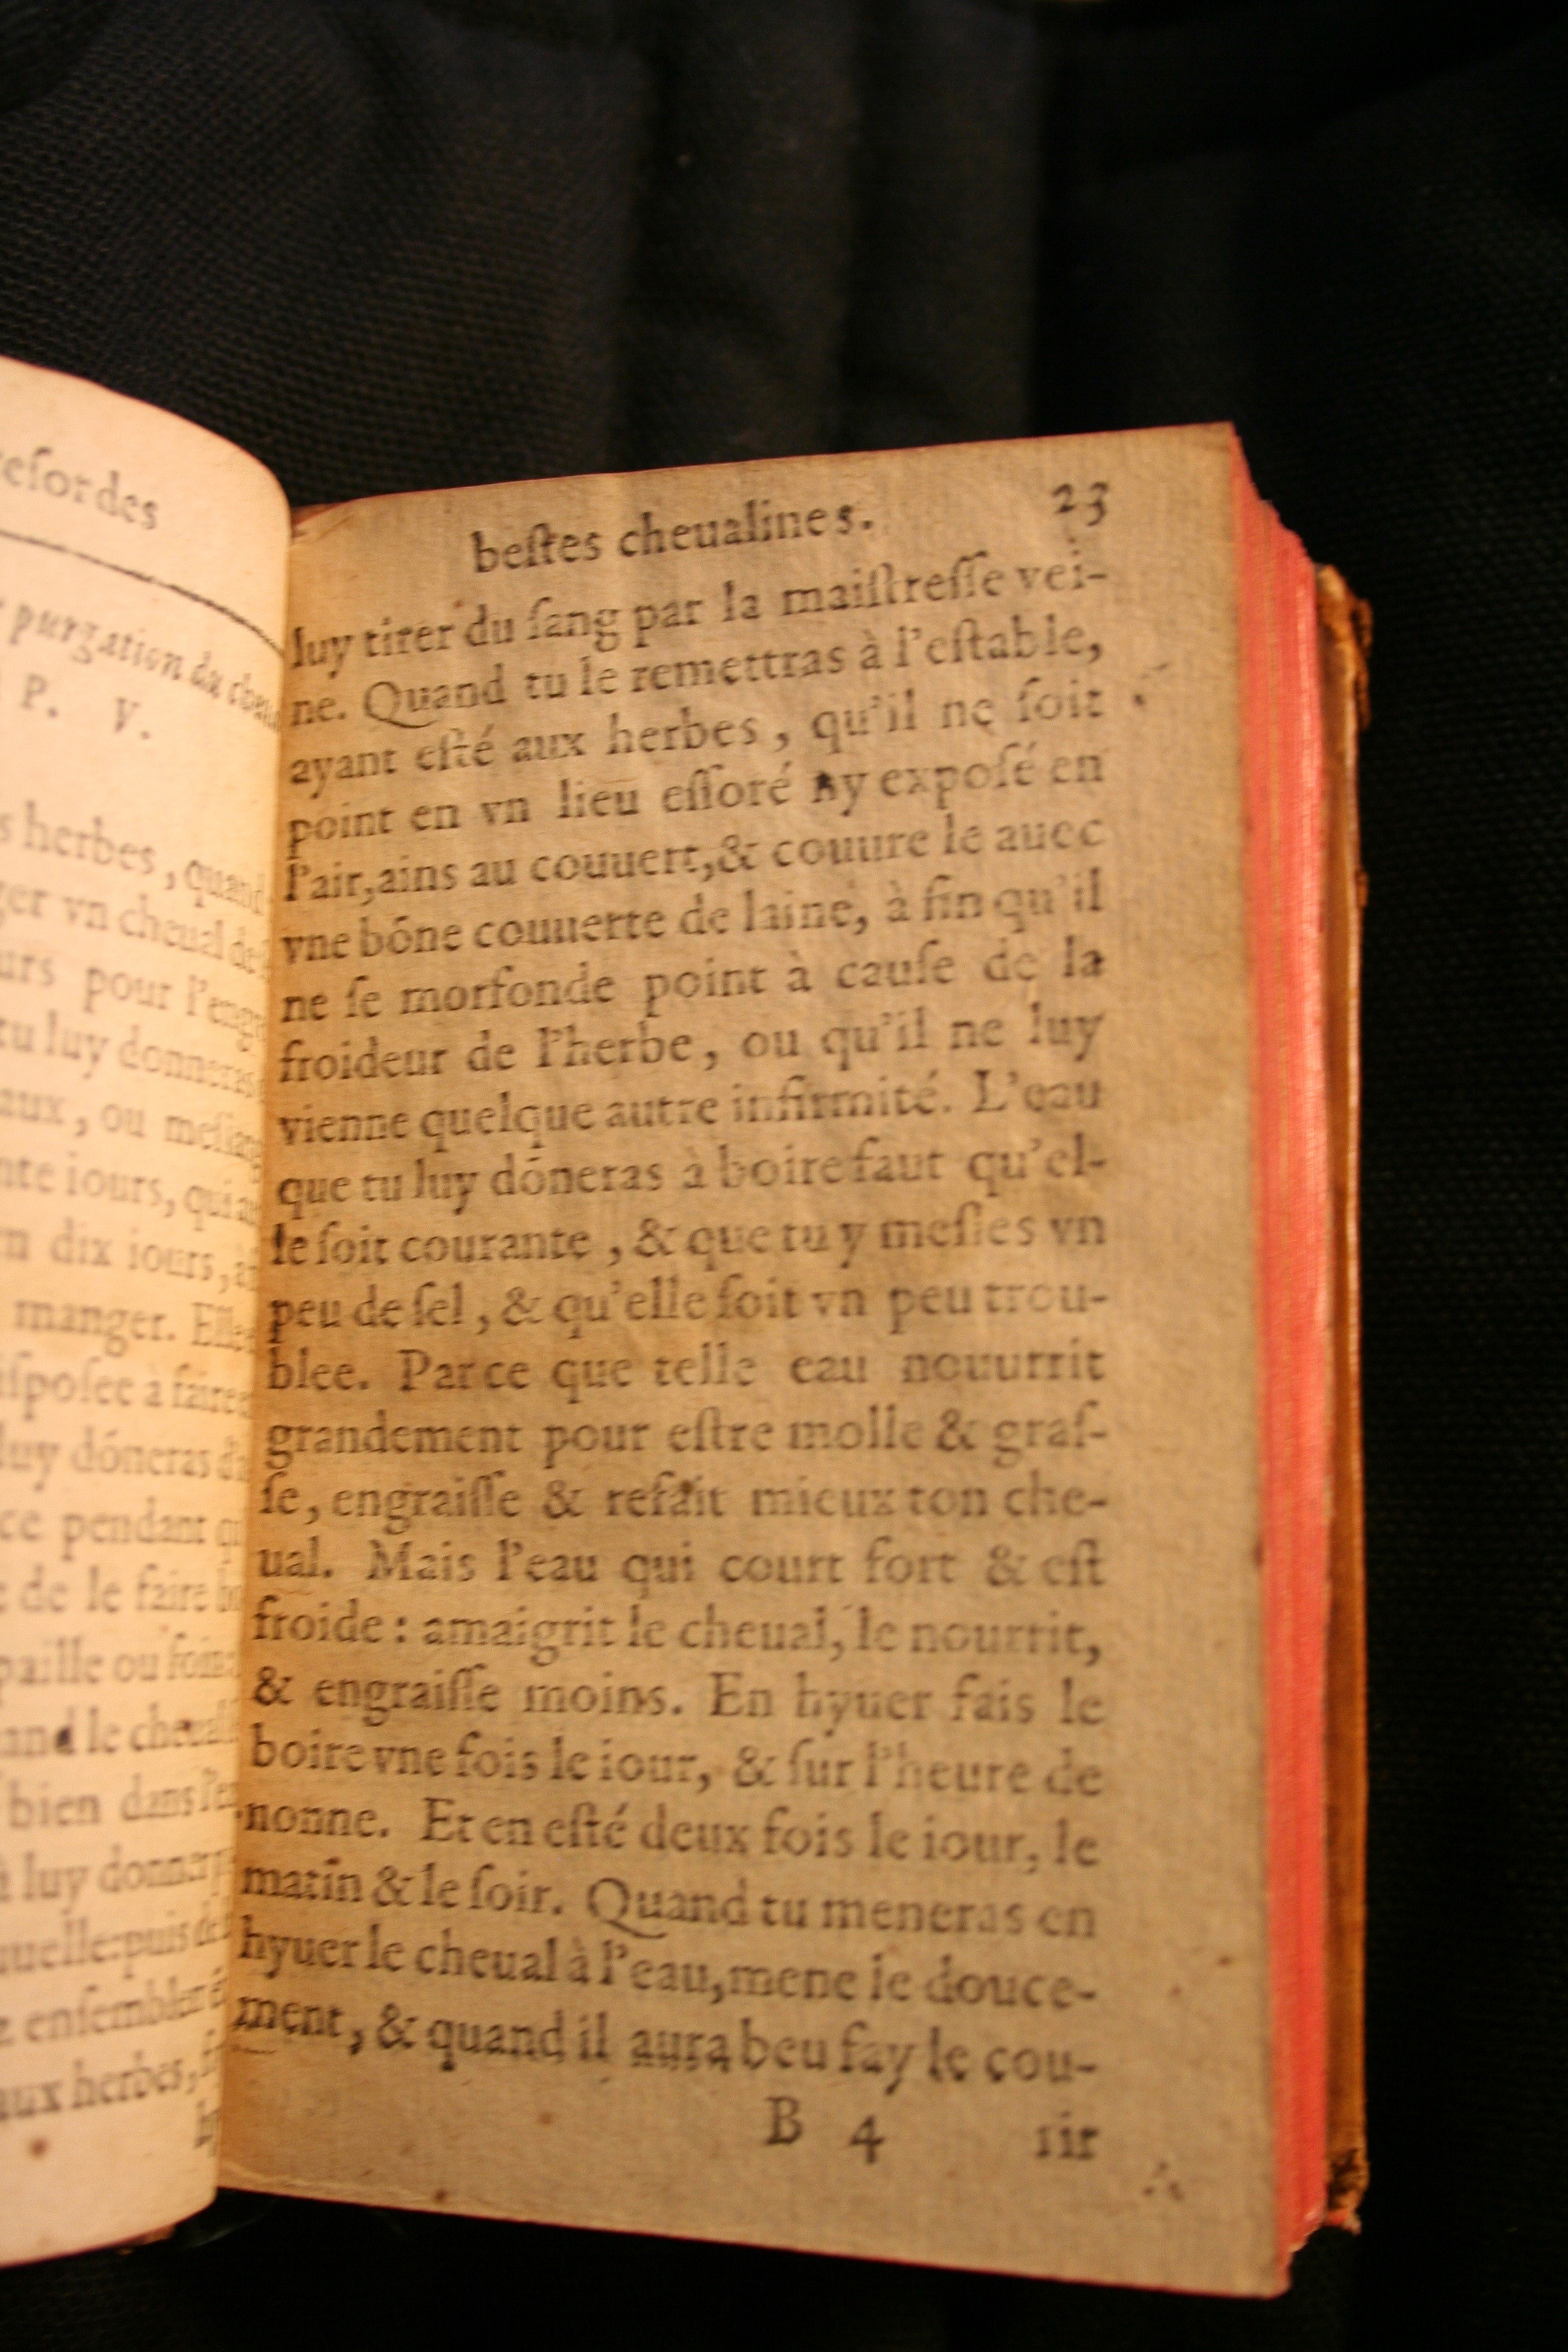 des
purgation du
P. V.
s herbes, quand
ger vn cheual de
urs pour l'eng
tu luy donneras
aux, ou
nte iours, qui
n dix iours,
manger.
ſpoſee à faire
luy dóneras
ce pendant
de le faire
paille ou foin
and le cheual
bien dans
luy donner
puis
enſemble
aux herbes,
beſtes cheualines. 23
luy tirer du ſang par la maiſtreſſe vei-
ne. Quand tu le remettras à l'eſtable,
ayant eſté aux herbes, qu'il ne ſoit
point en vn lieu eſſoré ny expoſé en
l'air, ains au couuert, & couure le auec
vne bõne couuerte de laine, à fin qu'il
ne ſe morfonde point à cauſe de la
froideur de l'herbe, ou qu'il ne luy
vienne quelque autre infirmité. L'eau
que tu luy dóneras à boire faut qu'el-
le ſoit courante, & que tu y meſles vn
peu de ſel, & qu'elle ſoit vn peu trou-
blee. Parce que telle eau nouurrit
grandement pour eſtre molle & graſ-
ſe, engraiſſe & refait mieux ton che-
ual. Mais l'eau qui court fort & eſt
froide : amaigrit le cheual, le nourrit,
& engraiſſe moins. En hyuer fais le
boire vne fois le iour, & ſur l'heure de
nonne. Et en eſté deux fois le iour, le
matin & le ſoir. Quand tu meneras en
hyuer le cheual à l'eau, mene le douce-
ment, & quand il aura beu fay le cou-
B 4 rir